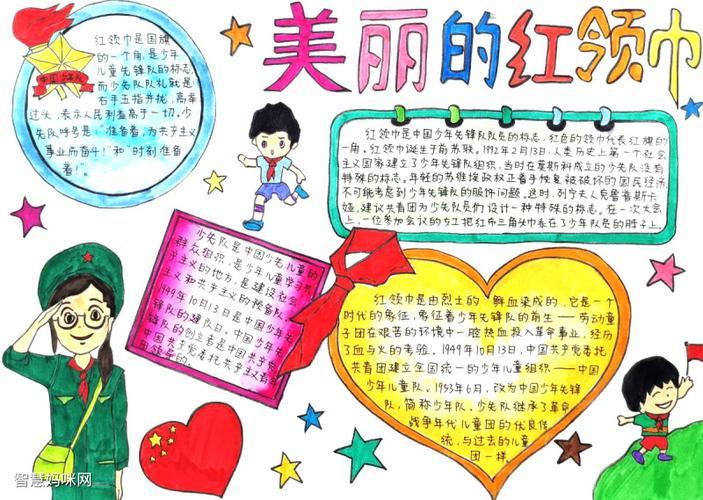 美丽的红领巾
中国少年队
红领巾是国旗
的一个角，是少年
儿童先锋队的标志，
而少先队队礼就是
右手五指并拢，高举
过头，表示人民利益高于一切。少
先队呼号是："准备着，为共产主义
事业而奋斗！"和"时刻准备
着！"
红领巾是中国少年先锋队队员的标志，红色的领巾代表红旗的
一角。红领巾诞生于前苏联。1992年2月13日，人类历史上第一个社会
主义国家建立了少年先锋队组织，当时在莫斯科成立的少先队没有
特殊的标志。年轻的苏维埃政权正着手恢复被破坏的国民经济，
不可能考虑到少年先锋队的服饰问题。这时，列宁夫人克鲁普斯卡
娅，建议共青团为少先队员们设计一种特殊的标志。在一次大会
上，一位参加会议的女工把红布三角头巾系在了少年队员的脖子上。
少先队是中国少先儿童的
群众组织，是少年儿童学习共
产主义的地方，是建设社会
主义和共产主义的预备队。
1949年10月13日是中国少年先
锋队的建队日。中国少年先
锋队的创立者是中国共产党，
中国共产党委托共产主义青年
团领导的。
红领巾是由烈士的鲜血染成的，它是一个
时代的象征，象征着少年先锋队的前生——劳动童
子团在艰苦的环境中一腔热血投入革命事业，经历
了血与火的考验。1949年10月13日，中国共产党委托
共青团建立全国统一的少年儿童组织——中国
少年儿童队。1953年6月，改为中国少年先锋
队，简称少年队。少先队继承了革命
战争年代儿童团的优良传
统，与过去的儿童
团一样。
智慧妈咪网